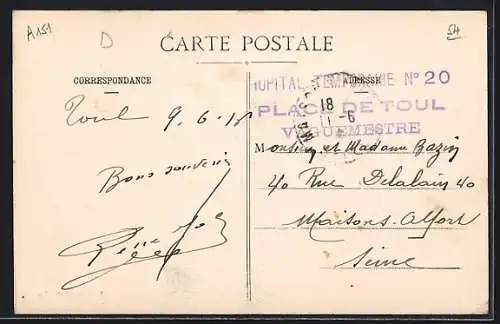 A151
D
54
CARTE POSTALE
CORRESPONDANCE
ADRESSE
HOPITAL TEMPORAIRE N° 20
PLACE DE TOUL
VAGUEMESTRE
18
11-6
Toul 9.6.18
Bons souvenirs
Monsieur et Madame Bazin
40 Rue Delalain 40
Maisons-Alfort
Seine